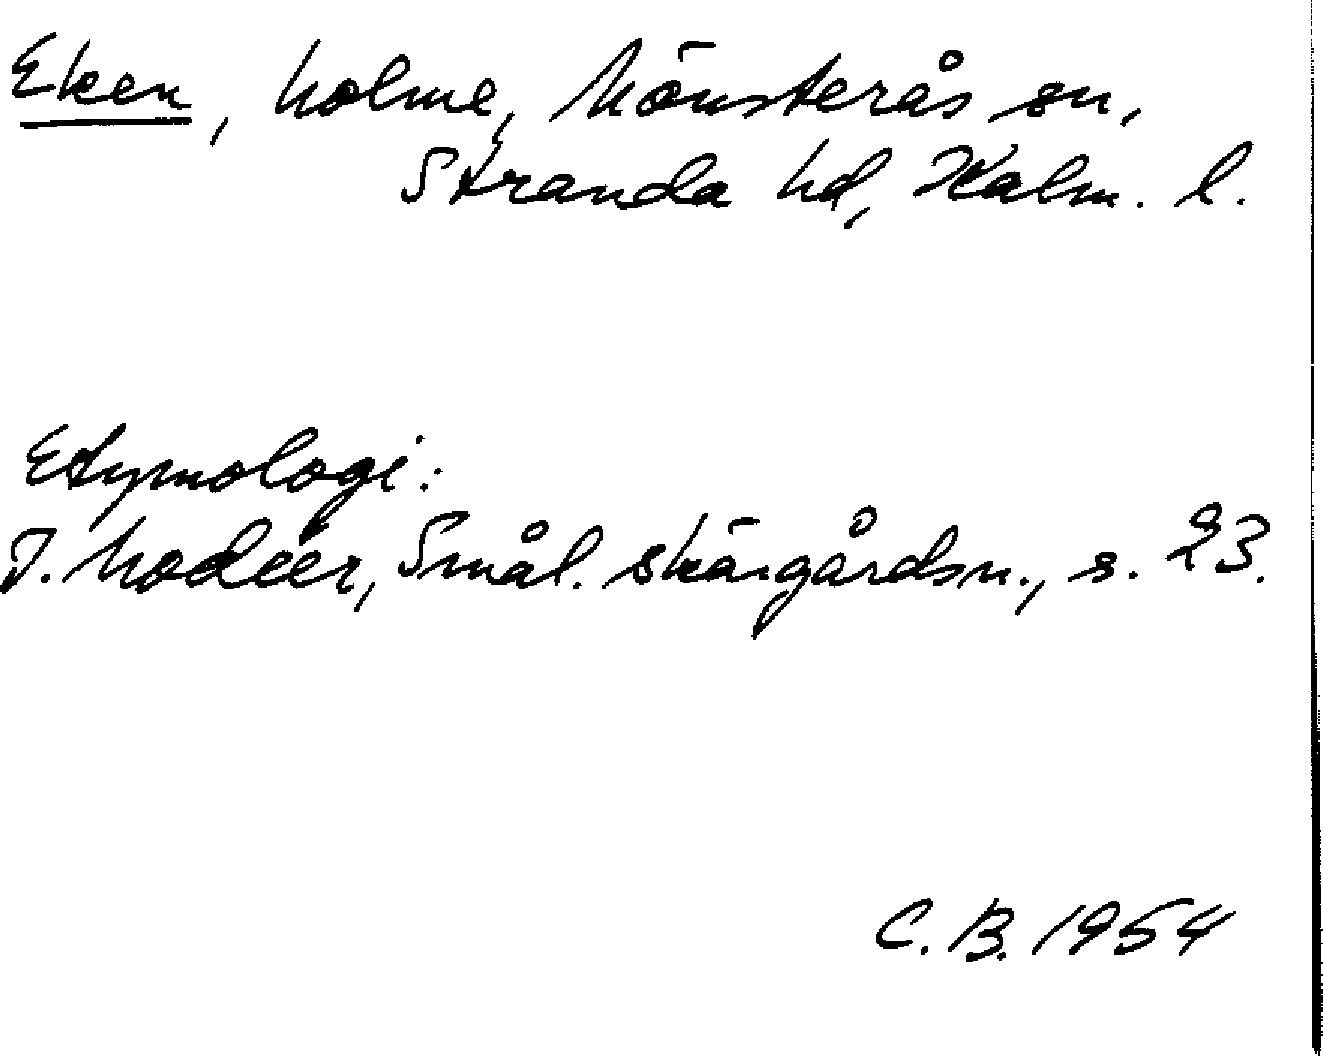 Eken, holme, Mönsterås sn,
Stranda hd, Kalm. l.
Etymologi:
I. Modéer, Smål. skärgårdsn., s. 23.
C. B. 1954